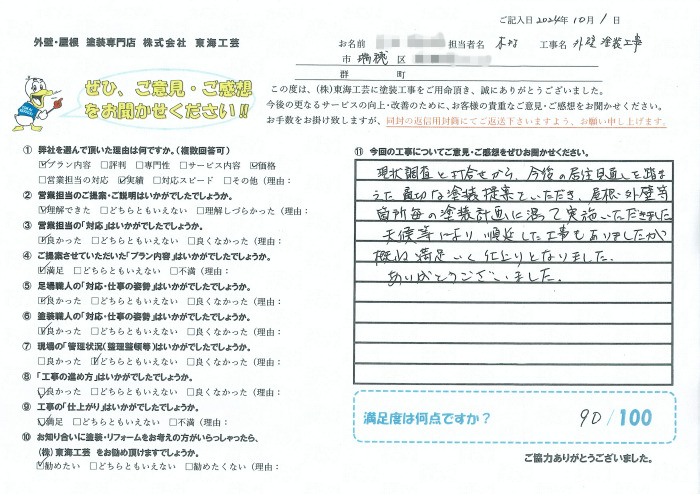 ご記入日 2024年 10月 1日
外壁・屋根 塗装専門店 株式会社 東海工芸
お名前 担当者名 木村 工事名 外壁塗装工事
市 瑞穂 区
郡 町
ぜひ、ご意見・ご感想
をお聞かせください!!
この度は、(株)東海工芸に塗装工事をご用命頂き、誠にありがとうございました。
今後の更なるサービスの向上・改善のために、お客様の貴重なご意見・ご感想をお聞かせください。
お手数をお掛け致しますが、同封の返信用封筒にてご返送下さいますよう、お願い申し上げます。
① 弊社を選んで頂いた理由は何ですか。(複数回答可)
☑プラン内容 □評判 □専門性 □サービス内容 ☑価格
□営業担当の対応 ☑実績 □対応スピード □その他(理由:
② 営業担当のご提案・ご説明はいかがでしたでしょうか。
☑理解できた □どちらともいえない □理解しづらかった(理由:
③ 営業担当の「対応」はいかがでしたでしょうか。
☑良かった □どちらともいえない □良くなかった(理由:
④ ご提案させていただいた「プラン内容」はいかがでしたでしょうか。
☑満足 □どちらともいえない □不満(理由:
⑤ 足場職人の「対応・仕事の姿勢」はいかがでしたでしょうか。
☑良かった □どちらともいえない □良くなかった(理由:
⑥ 塗装職人の「対応・仕事の姿勢」はいかがでしたでしょうか。
☑良かった □どちらともいえない □良くなかった(理由:
⑦ 現場の「管理状況(整理整頓等)はいかがでしたでしょうか。
□良かった ☑どちらともいえない □良くなかった(理由:
⑧ 「工事の進め方」はいかがでしたでしょうか。
☑良かった □どちらともいえない □良くなかった(理由:
⑨ 工事の「仕上がり」はいかがでしたでしょうか。
☑満足 □どちらともいえない □不満(理由:
⑩ お知り合いに塗装・リフォームをお考えの方がいらっしゃったら、
(株)東海工芸 をお勧め頂けますでしょうか。
☑勧めたい □どちらともいえない □勧めたくない(理由:
⑪ 今回の工事についてご意見・ご感想をぜひお聞かせください。
現状調査と打合せから、今後の居住見通しを踏ま
えた適切な塗装提案をいただき、屋根・外壁等
箇所毎の塗装計画に沿って実施いただきました
天候等により順延した工事もありましたが
概ね満足いく仕上りとなりました。
ありがとうございました。
満足度は何点ですか? 90/100
ご協力ありがとうございました。